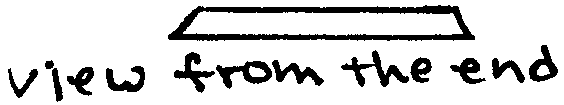 view from the end